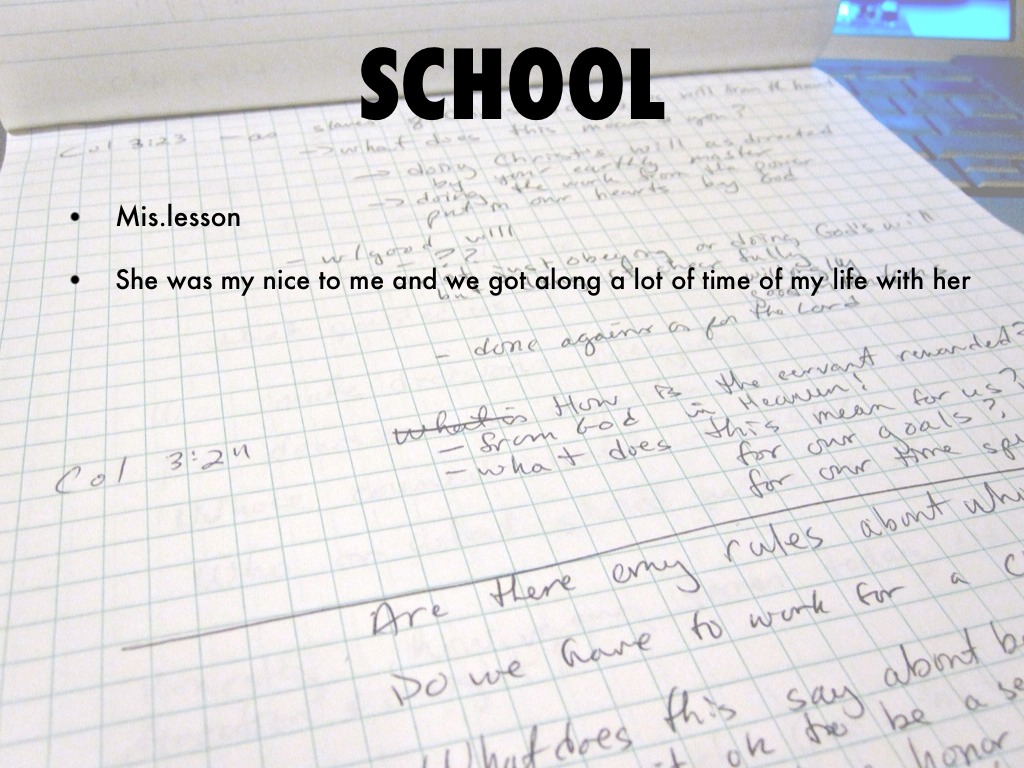 SCHOOL
• Mis.lesson
• She was my nice to me and we got along a lot of time of my life with her
Col 3:23 - as slaves
-> what does this mean
-> doing Christ's will as directed
by your earthly master
-> doing the work from the power
put in our hearts by God
- w/good will
obeying or doing God's will
- done against or for the Lord
What is How is the servant rewarded?
- from God in Heaven!
Col 3:24 - what does this mean for us?
for our goals?
for our time
Are there any rules about
Do we have to work for a
What does this say about
ok to be a
honor